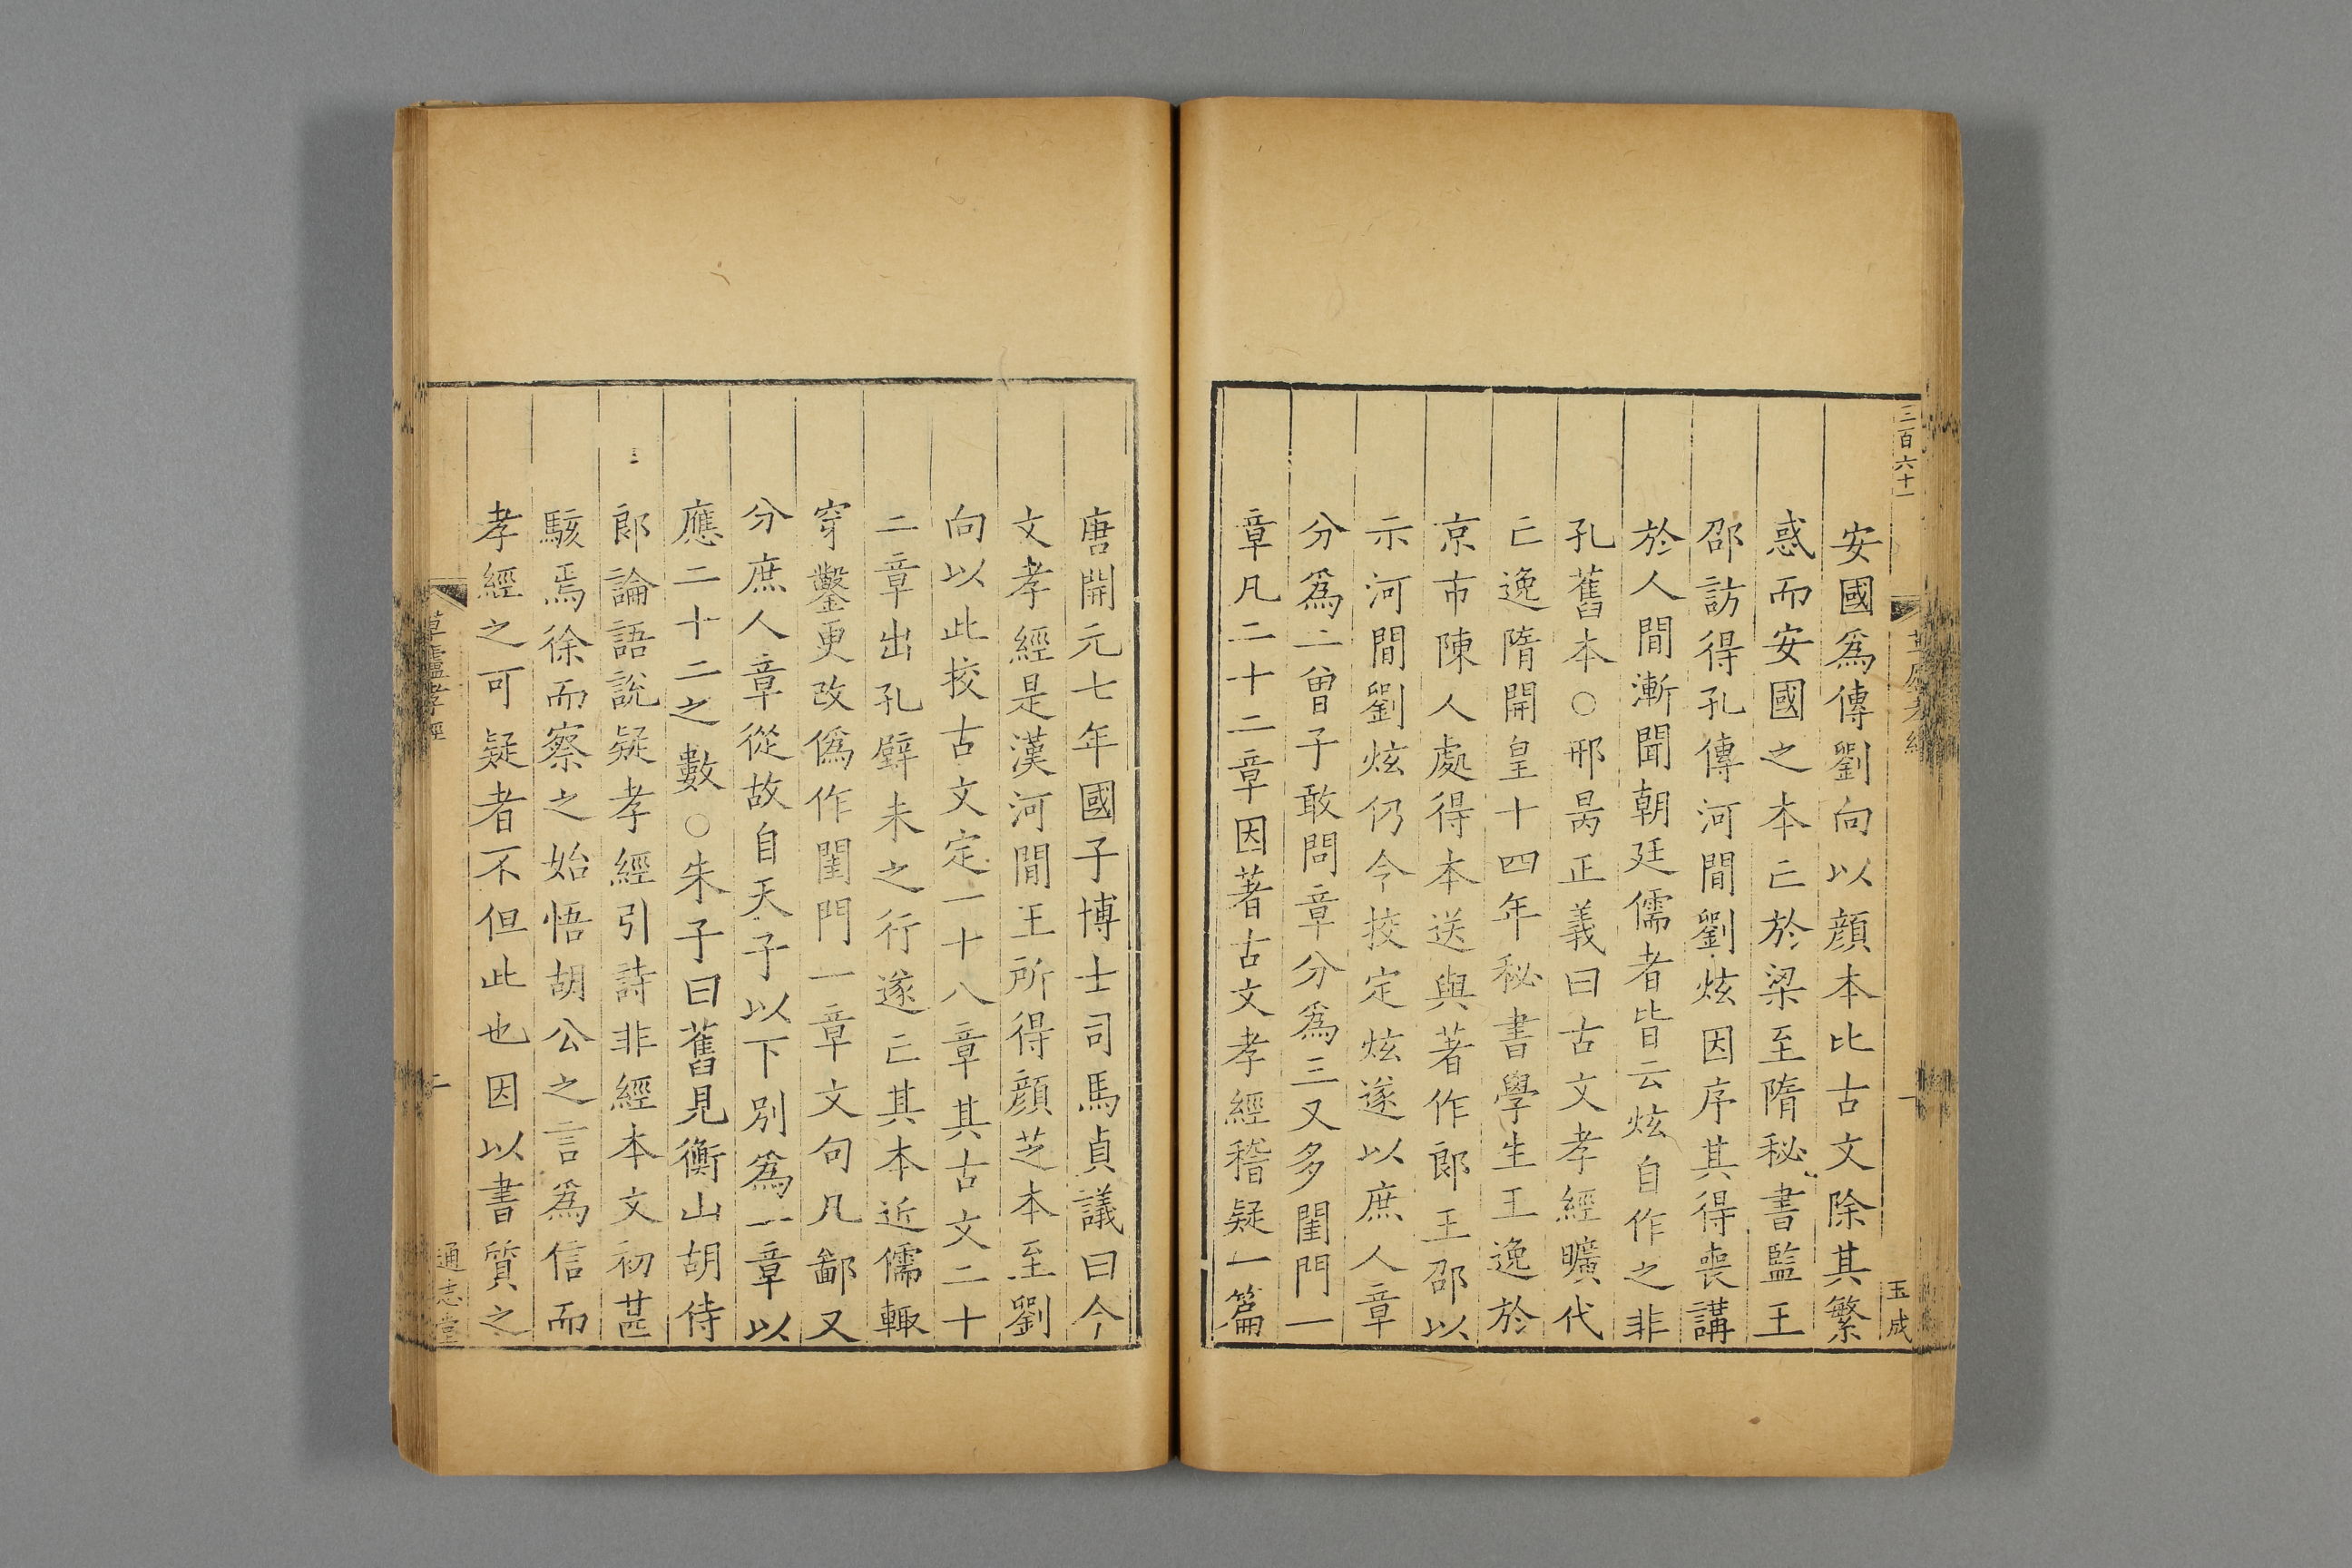 三百六十一
安國爲傳劉向以顔本比古文除其繁
惑而安國之本亡於梁至隋秘書監王
邵訪得孔傳河間劉炫因序其得喪講
於人間漸聞朝廷儒者皆云炫自作之非
孔舊本○邢昺正義曰古文孝經曠代
亡逸隋開皇十四年秘書學生王逸於
京市陳人處得本送與著作郎王邵以
示河間劉炫仍令挍定炫遂以庶人章
分爲二曾子敢問章分爲三又多閨門一
章凡二十二章因著古文孝經稽疑一篇
一
玉成
唐開元七年國子博士司馬貞議曰今
文孝經是漢河間王所得顔芝本至劉
向以此挍古文定一十八章其古文二十
二章出孔壁未之行遂亡其本近儒輙
穿鑿更改僞作閨門一章文句凡鄙又
分庶人章從故自天子以下別爲一章以
應二十二之數○朱子曰舊見衡山胡侍
郎論語說疑孝經引詩非經本文初甚
駭焉徐而察之始悟胡公之言爲信而
孝經之可疑者不但此也因以書質之
草廬孝經
二
通志堂